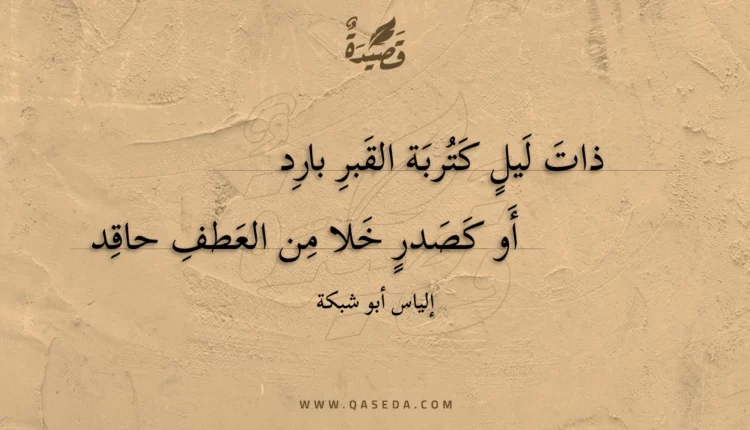 قَصِيْدَةٌ
ذاتَ لَيلٍ كَتُربَة القَبرِ بارِدِ
أَو كَصَدرٍ خَلا مِن العَطفِ حاقِد
إلياس أبو شبكة
WWW.QASEDA.COM